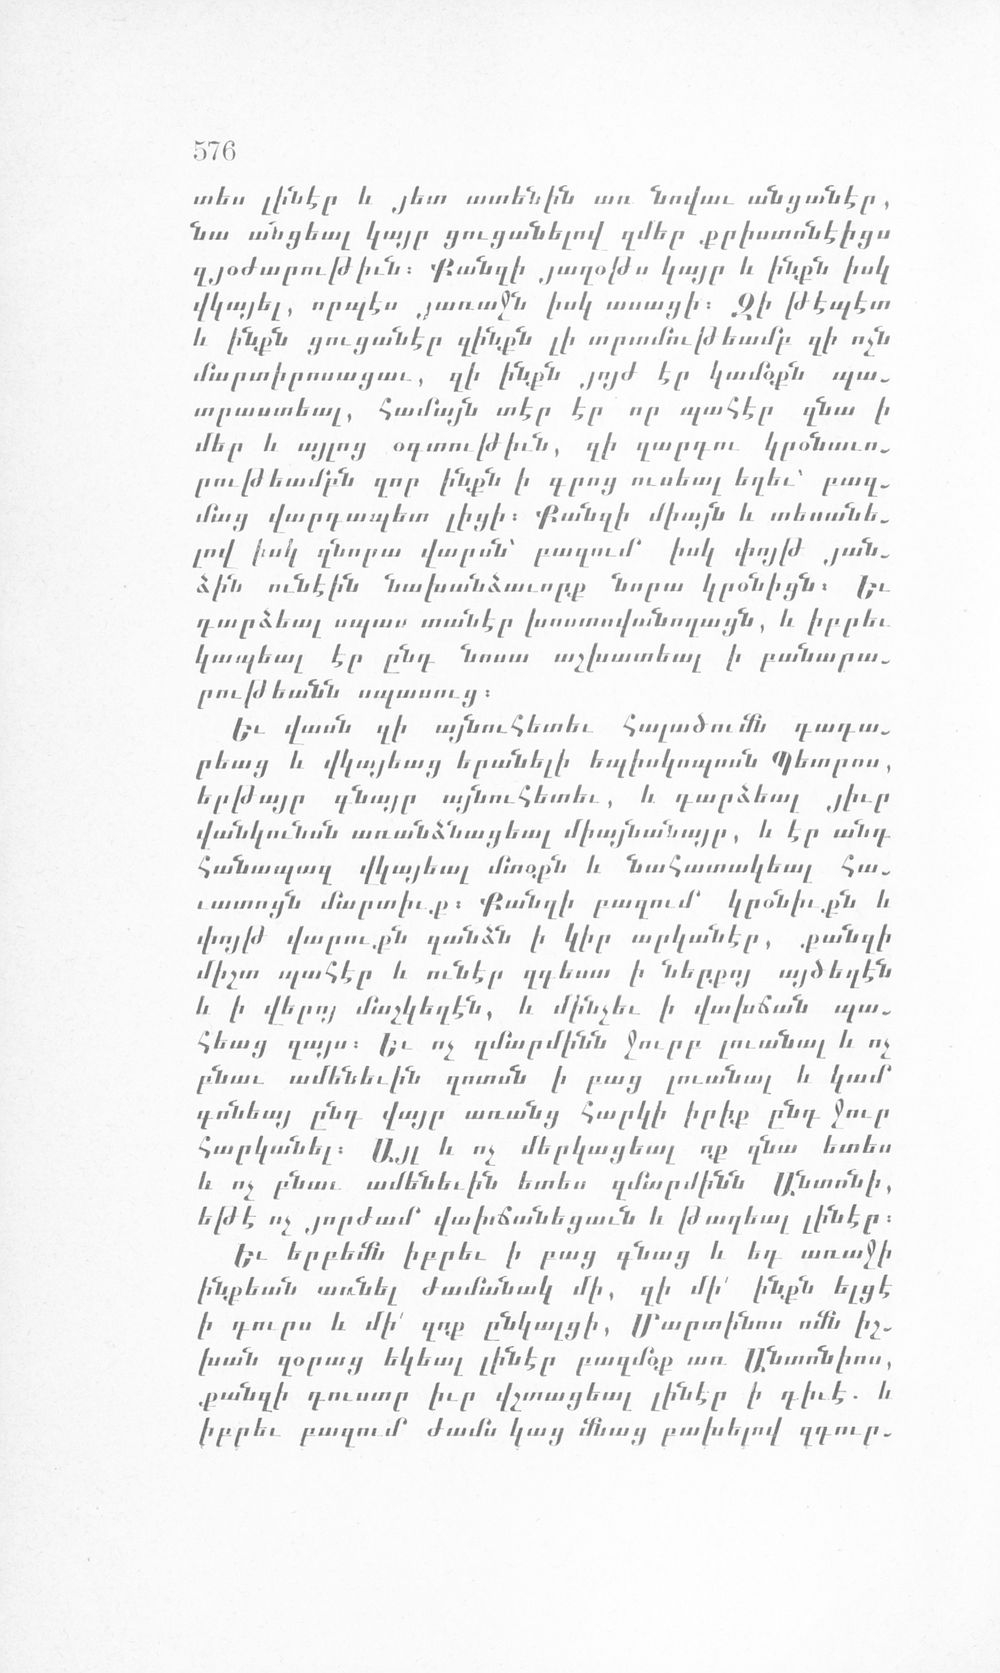 576
տես լինէր և յետ ատենին առ նովաւ անցանէր,
նա անցեալ կայր ցուցանելով զմեր քրիստոնէիցս
զյօժարութիւն։ Քանզի յաղօթս կայր և ինքն իսկ
վկայել, որպէս յառաջն իսկ ասացի։ Զի թէպէտ
և ինքն ցուցանէր զինքն լի տրտմութեամբ զի ոչն
մարտիրոսացաւ, զի ինքն յոյժ էր կամօքն պա֊
տրաստեալ, համայն տէր էր որ պահէր զնա ի
մեր և այլոց օգտութիւն, զի զարդու կրօնաւո֊
րութեամբն զոր ինքն ի գրոց ուսեալ եղեւ՝ բազ֊
մաց վարդապետ լիցի։ Քանզի միայն և տեսանե֊
լով իսկ զնորա վարսն՝ բազում իսկ փոյթ յան֊
ձին ունէին նախանձաւորք նորա կրօնիցն։ Եւ
դարձեալ սպաս տանէր խոստովանողացն, և իբրեւ
կապեալ էր ընդ նոսա աշխատեալ ի բանարա֊
րութեանն սպասուց։
Եւ վասն զի այնուհետեւ հալածումն դադա֊
րեաց և վկայեաց երանելի եպիսկոպոսն Պետրոս,
երթայր գնայր այնուհետեւ, և դարձեալ յիւր
վանկունսն առանձնացեալ միայնանայր, և էր անդ
հանապազ վկայեալ մտօքն և նահատակեալ հա֊
ւատոցն մարտիւք։ Քանզի բազում կրօնիւքն և
փոյթ վարուքն զանձն ի կիր արկանէր, քանզի
միշտ պահէր և ունէր զգեստ ի ներքոյ այծեղէն
և ի վերոյ մաշկեղէն, և մինչեւ ի վախճան պա֊
հեաց զայս։ Եւ ոչ զմարմինն ջուրբ լուանալ և ոչ
բնաւ ամենեւին զոտսն ի բաց լուանալ և կամ
գոնեայ ընդ վայր առանց հարկի իրիք ընդ ջուր
հարկանել։ Այլ և ոչ մերկացեալ ոք զնա ետես
և ոչ բնաւ ամենեւին ետես զմարմինն Անտոնի,
եթէ ոչ յորժամ վախճանեցաւն և թաղեալ լինէր։
Եւ երբեմն իբրեւ ի բաց գնաց և եդ առաջի
ինքեան առնել ժամանակ մի, զի մի՛ ինքն ելցէ
ի դուրս և մի՛ զոք ընկալցի, Մարտինոս ոմն իշ֊
խան զօրաց եկեալ լինէր բազմօք առ Անտոնիոս,
քանզի դուստր իւր վշտացեալ լինէր ի դիւէ. և
իբրեւ բազում ժամս կաց մնաց բախելով զդուր֊